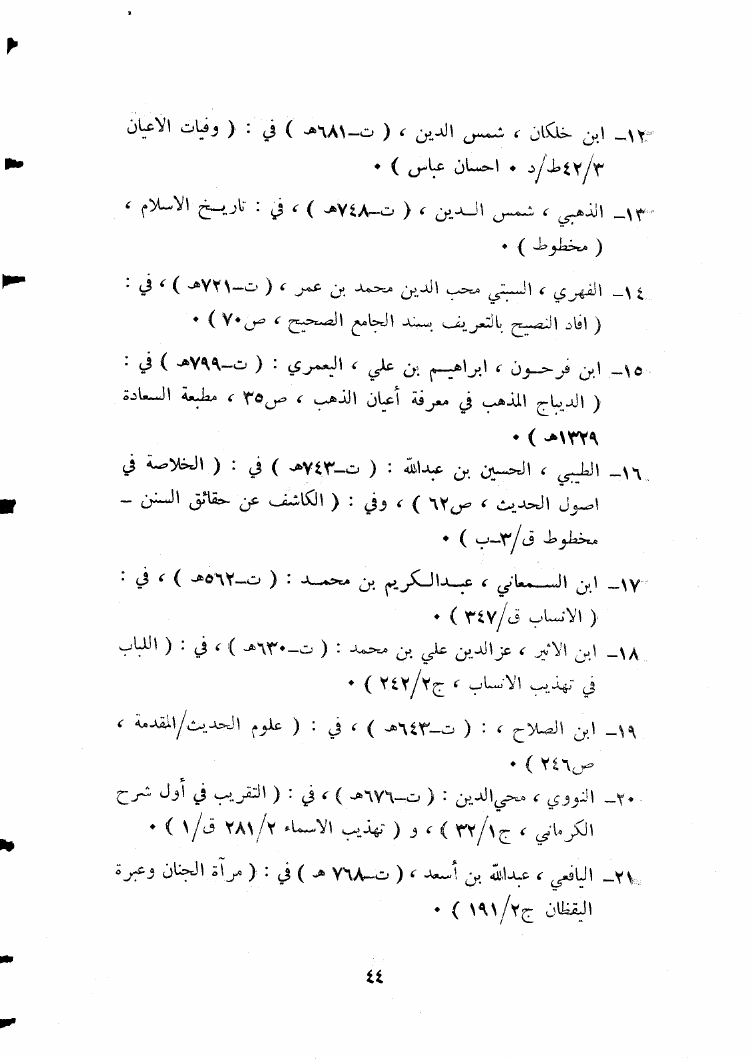 ١٢ــ ابن خلكان ، شمس الدين ، ( ت–٦٨١هـ ) في : ( وفيات الاعيان
٤٢/٣ط/د ٠ احسان عباس ) ٠
١٣ــ الذهبي ، شمس الدين ، ( ت–٧٤٨هـ ) ، في : تاريخ الاسلام ،
( مخطوط ) ٠
١٤ــ الفهري ، السبتي محب الدين محمد بن عمر ، ( ت–٧٢١هـ ) ، في :
( افاد النصيح بالتعريف بسند الجامع الصحيح ، ص٧٠ ) ٠
١٥ــ ابن فرحون ، ابراهيم بن علي ، اليعمري : ( ت–٧٩٩هـ ) في :
( الديباج المذهب في معرفة أعيان الذهب ، ص٣٥ ، مطبعة السعادة
١٣٢٩هـ ) ٠
١٦ــ الطيبي ، الحسين بن عبدالله : ( ت–٧٤٣هـ ) في : ( الخلاصة في
اصول الحديث ، ص٦٢ ) ، وفي : ( الكاشف عن حقائق السنن –
مخطوط ق/٣–ب ) ٠
١٧ــ ابن السمعاني ، عبدالكريم بن محمد : ( ت–٥٦٢هـ ) ، في :
( الانساب ق/٣٤٧ ) ٠
١٨ــ ابن الاثير ، عزالدين علي بن محمد : ( ت–٦٣٠هـ ) ، في : ( اللباب
في تهذيب الانساب ، ج٢٤٢/٢ ) ٠
١٩ــ ابن الصلاح ، : ( ت–٦٤٣هـ ) ، في : ( علوم الحديث/المقدمة ،
ص٢٤٦ ) ٠
٢٠ــ النووي ، محيالدين : ( ت–٦٧٦هـ ) ، في : ( التقريب في أول شرح
الكرماني ، ج٣٢/١ ) ، و ( تهذيب الاسماء ٢٨١/٢ ق/١ ) ٠
٢١ــ اليافعي ، عبدالله بن أسعد ، ( ت–٧٦٨ هـ ) في : ( مرآة الجنان وعبرة
اليقظان ج١٩١/٢ ) ٠
٤٤